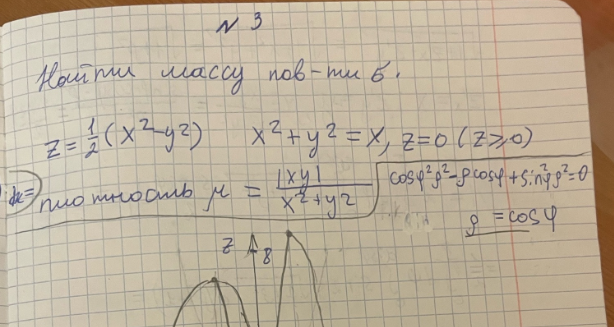 № 3
Найти массу пов-ти б.
z = 1/2 (x² - y²)   x² + y² = x, z = 0 (z ⩾ 0)
плотность μ = |xy| / (x² + y²)
cosφ²ρ² - ρcosφ + sin²φρ² = 0
ρ = cosφ
z 8